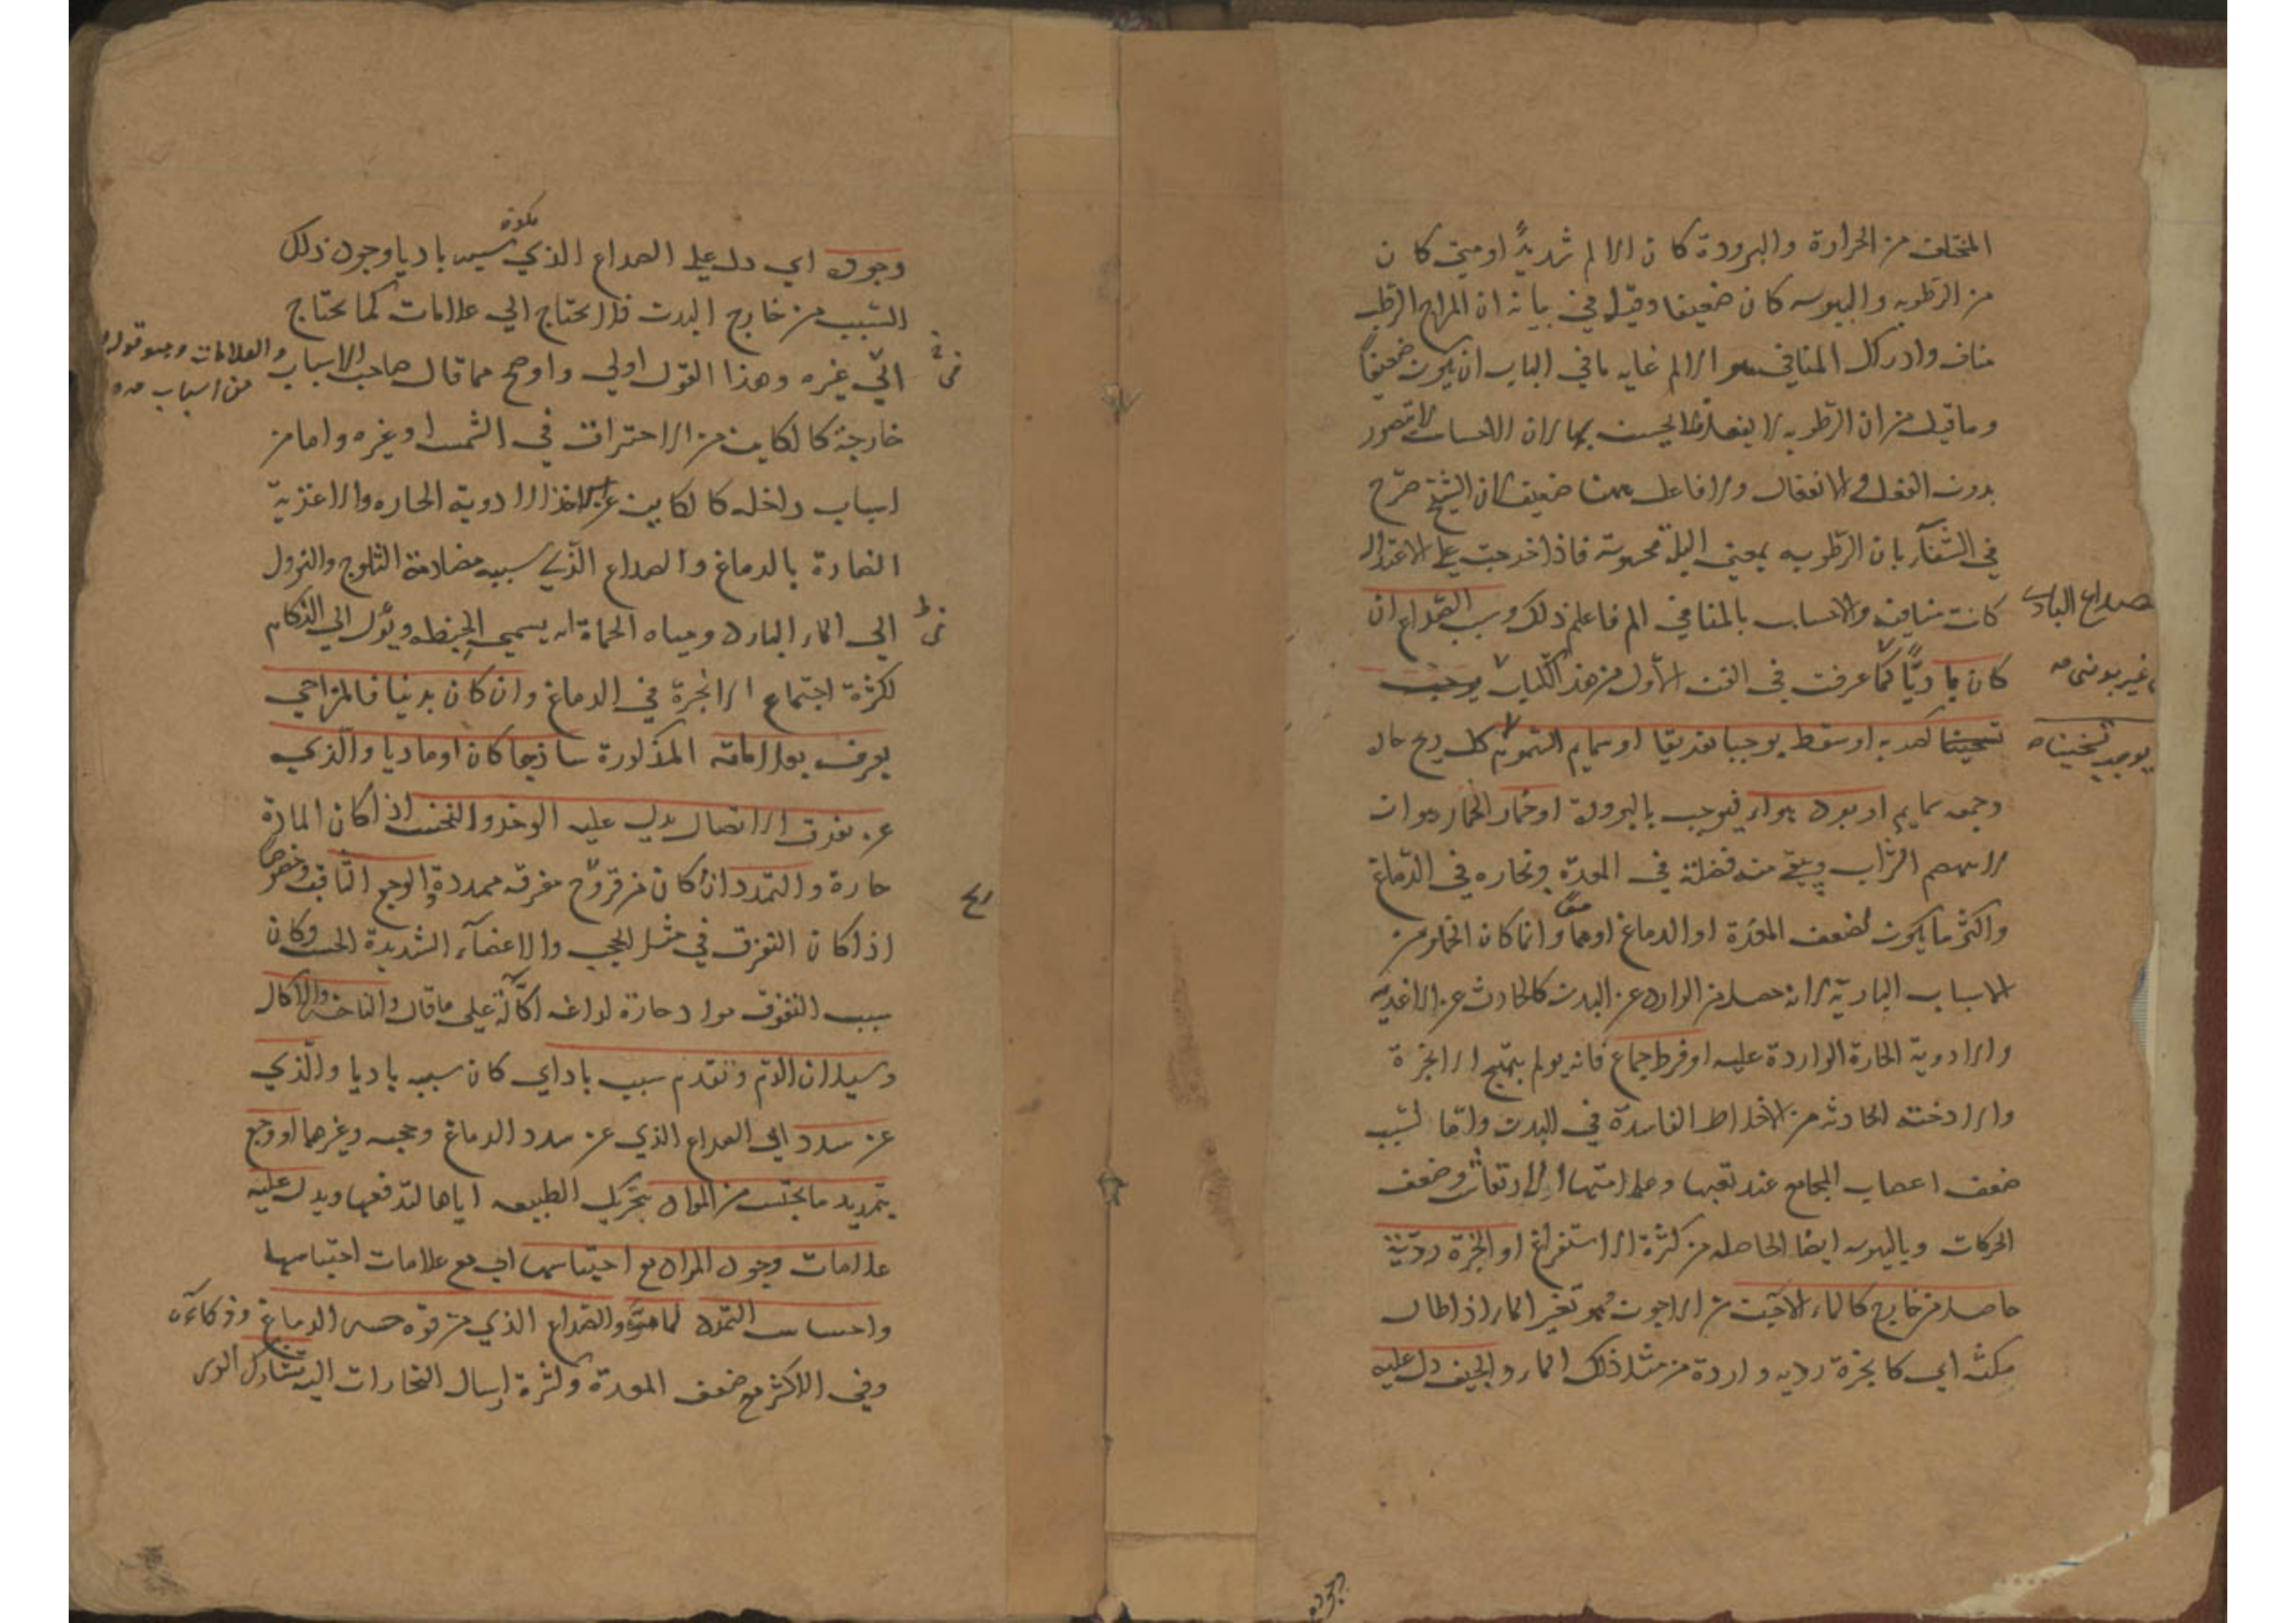 المختلف من الحرارة والبرودة كان الالم شديدًا ومتي كان
من الرطوبه واليبوسه كان ضعيفا وقيل في بيانه ان المزاج الرطب
مناف وادراك المنافي هو الالم غايه ما في الباب ان يكون ضعيفًا
وما قيل من ان الرطوبه لا ينفعل الحس بها لان الاحساس لا يتصور
بدون الفعل والانفعال ولا فاعل ضعيف لان الشيخ صرّح
في الشفآء بان الرطوبه بمعني البلة محسوسة فاذا خرجت علي الاعتدال
كانت منافيه والاحساس بالمنافي الم فاعلم ذلك وسبب الصداع ان
كان باديًّا كما عرفت في الفن الاول من هذا الكتاب يوجب
تسخينا كضربه او سقطه يوجبا تفريقا او سمايم السموم كل ريح حاره
وجمعه سمايم او بروده هواء فيوجب بالبرودة او خمار الخمار هو ان
لا ينهضم الشراب ويبقي منه فضلة في المعدة وبخاره في الدماغ
واكثر ما يكون لضعف المعدة او الدماغ او هما معًا وانما كان الخمار من
الاسباب البادية لانه حصل من الوارد عن البدن كالحادث عن الاغذيه
والادوية الحارة الواردة عليه او فرط جماع فانه يولم بتهييج الابخرة
والادخنة الحادثه من الاخلاط الفاسدة في البدن واما لسبب
ضعف اعصاب المجامع عند تعبها وعلامتها الارتعاش وضعف
الحركات وباليبوسه ايضا الحاصله من كثرة الاستفراغ او ابخرة رديّة
حاصله من خارج كالماء الآجن من الاجون وهو تغير الماء اذا طال
مكثه اي كابخرة رديه واردة من مثل ذلك الماء والجيف دل عليه
صداع البادي
يوجب تسخينا
وجوده
وجوده اي دل علي الصداع الذي يكون سببه باديا وجود ذلك
السبب من خارج البدن فلا يحتاج الي علامات كما يحتاج
الي غيره وهذا القول اولي واوضح مما قال صاحب الاسباب والعلامات وهو قوله
من اسباب
خارجة كالكاين من الاحتراق في الشمس او غيره واما من
اسباب داخله كالكاين عن اخذ الادوية الحاره والاغذية
الضارة بالدماغ والصداع الذي سببه مصادفة الثلوج والنزول
الي الماء البارد ومياه الحماة يسمي الخبطه ويؤل الي الزكام
لكثرة اجتماع الابخرة في الدماغ وان كان بدنيا فالمزاجي
يعرف بعلاماته المذكورة ساذجا كان او ماديا والذي
عن تفرق الاتصال يدل عليه الوخز والنخس اذا كان المادة
حارة والتمدد ان كان من قروح مفرقه ممددة والوجع الثاقب وخصوصا
اذا كان التفرق في مثل الحجب والاعضآء الشديدة الحس وكان
سبب التفرق مواد حارة لداغه اكّالة علي ما قال والناخس والاكال
وسيلان الدم وتقدم سبب باد اي كان سببه باديا والذي
عن سدد اي الصداع الذي عن سدد الدماغ وحجبه وغيرهما او وجع
يتمديد ما يحتبس من المواد بتحريك الطبيعه اياها لتدفعها ويدل عليه
علامات وجود المواد مع احتباسها اي مع علامات احتباسها
واحساس التمدد والصداع الذي من قوه حس الدماغ وذكاءه
وفي الاكثر مع ضعف المعدة وكثرة ارسال البخارات اليه